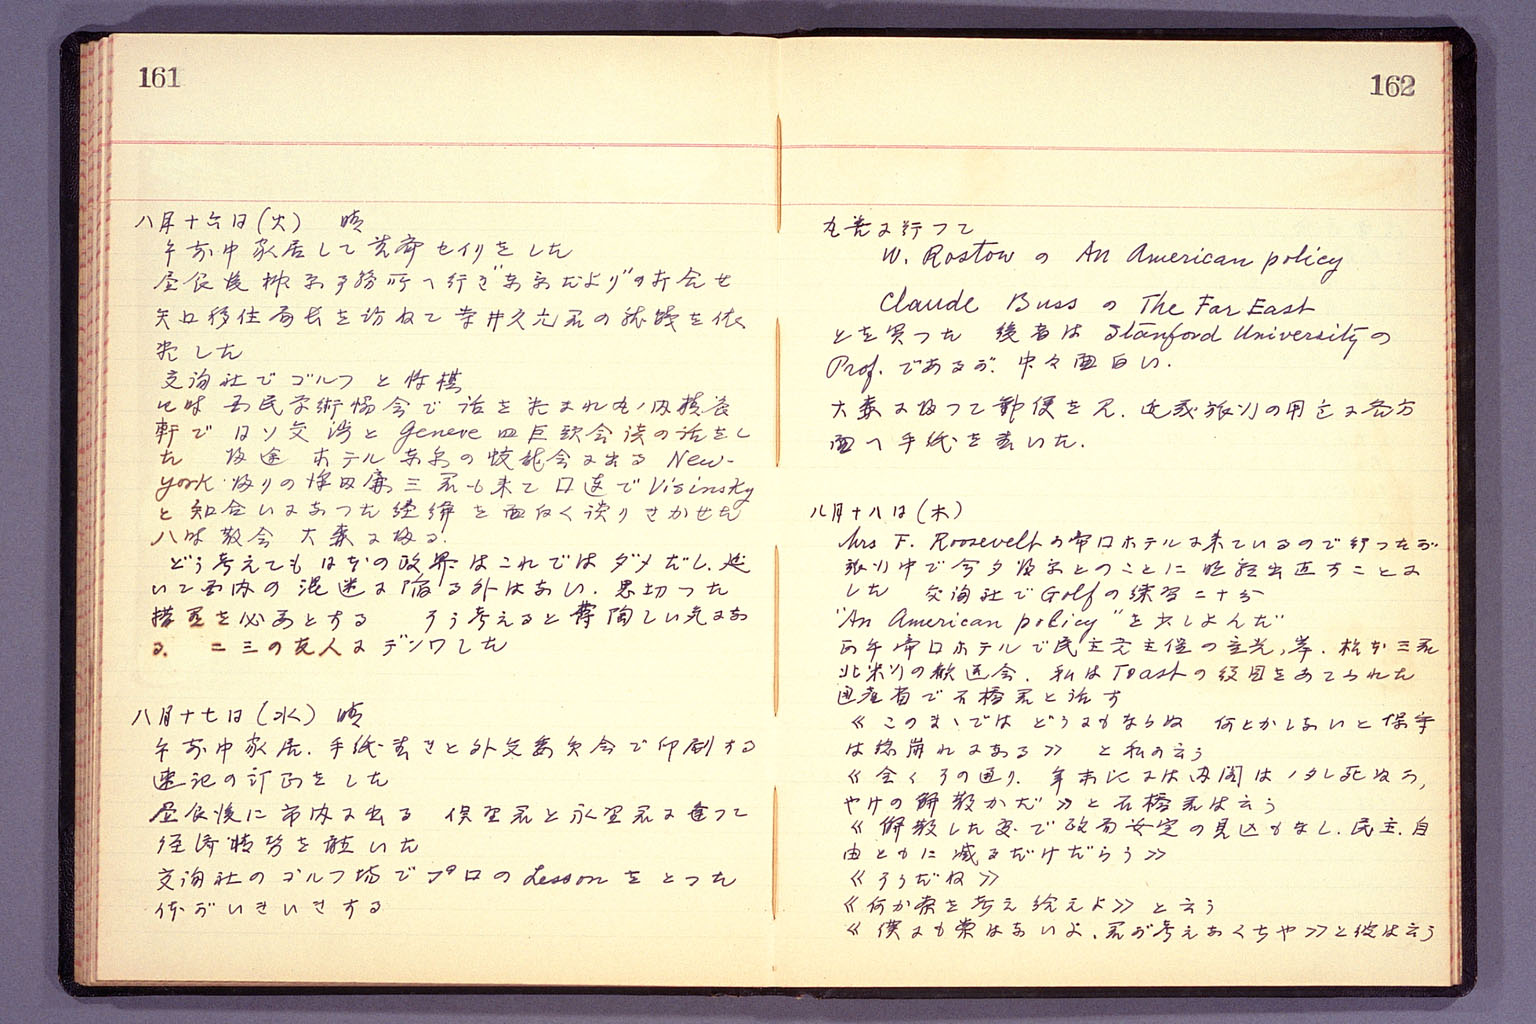 161
八月十六日(火) 晴
午前中家居して書斎セイリをした
昼食後 事務所へ行き"東京だより"の打合せ
矢口移住局長を訪ねて 井久 君の就職を依
頼した
交詢社でゴルフと将棋
七時 国民学術協会で話を たまれ丸ノ内精養
軒で日ソ交渉とGeneve四巨頭会談の話をし
た 帰途 ホテル東京の 会に出る New-
york帰りの 田廉三君も来て口達でVisinsky
と知合いになつた経緯を面白く談りきかせた
八時散会 大森に帰る.
どう考えても日本の政界はこれではダメだし、延
いて国内の混迷に陥る外はない. 思切つた
措置を必要とする そう考えると鬱陶しい気にな
る. 二三の友人にデンワした
八月十七日(水) 晴
午前中家居. 手紙書きと外交委員会で印刷する
速記の訂正をした
昼食後に市内に出る 俣野君と永野君に逢つて
経済情勢を聴いた
交詢社のゴルフ場でプロのLessonをとつた
体がいきいきする
162
丸善に行つて
W. Rostow の An American policy
Claude Buss の The Far East
とを買つた 後者は Stanford Universityの
Prof. であるが. 中々面白い.
大森に帰つて郵便を見. 近 旅行の用意に各方
面へ手紙を書いた.
八月十八日(木)
Mrs F. Rooseveltの帝国ホテルに来ているので行つたが
旅行中で今夕帰京とのことに 出直すことに
した 交詢社でGolfの練習二十分
"An American policy"を少しよんだ
正午帝国ホテルで民主党主催の 、 . 松本三君
北米行の歓送会. 私はToastの役目をあてられた
 で石橋君と話す
≪このまゝではどうにもならぬ 何とかしないと保守
は総崩れになる≫ と私の云う
≪全くその通り. 年末 には内閣は ノタレ死ぬか,
やけの解散かだ≫と石橋君は云う
≪解散した処で政局安定の見込もなし. 民主. 自
由ともに減るだけだらう≫
≪そうだね≫
≪何か案を考え給えよ≫と云う
≪僕にも案はないよ. 君が考えなくちや≫と彼は云う